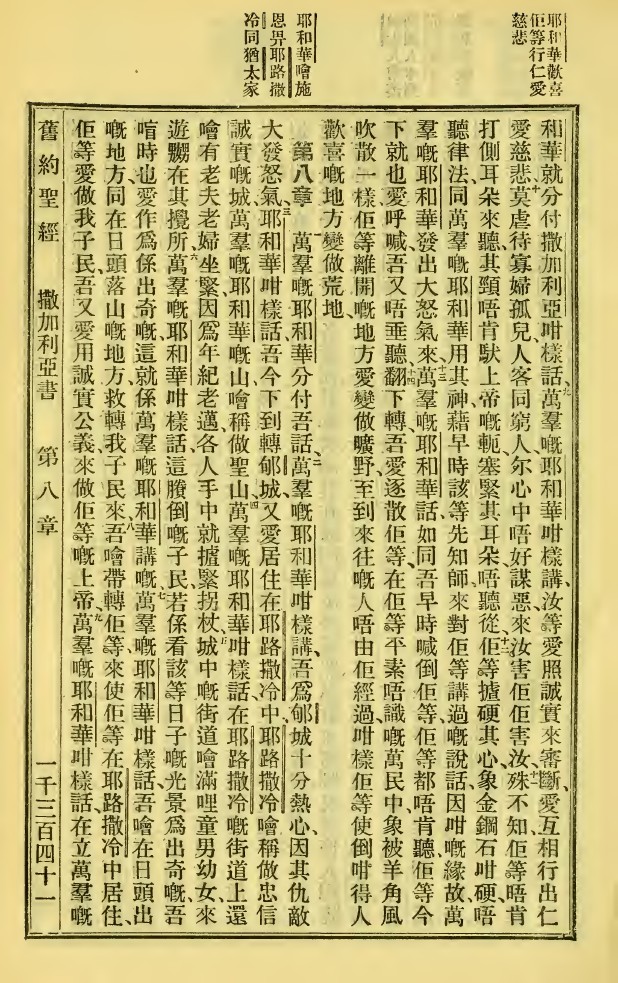 耶和華歡喜
佢等行仁愛
慈悲
耶和華噲施
恩畀耶路撒
冷同猶太家
和華就分付撒加利亞咁樣話、九萬羣嘅耶和華咁樣講、汝等愛照誠實來審斷、愛互相行出仁
愛慈悲、十莫虐待寡婦孤兒、人客同窮人、尔心中唔好謀惡來汝害佢佢害汝、十一殊不知佢等唔肯
打側耳朵來聽、其頸唔肯馱上帝嘅軛、塞緊其耳朵、唔聽從、十二佢等摣硬其心象金鋼石咁硬、唔
聽律法、同萬羣嘅耶和華用其神藉早時該等先知師來對佢等講過嘅說話、因咁嘅緣故、萬
羣嘅耶和華發出大怒氣來、十三萬羣嘅耶和華話、如同吾早時喊倒佢等、佢等都唔肯聽、佢等今
下就也愛呼喊、吾又唔垂聽、十四翻下轉、吾愛逐散佢等、在佢等平素唔識嘅萬民中、象被羊角風
吹散一樣、佢等離開嘅地方愛變做曠野、至到來往嘅人唔由佢經過、咁樣佢等使倒咁得人
歡喜嘅地方變做荒地、
第八章 一萬羣嘅耶和華分付吾話、二萬羣嘅耶和華咁樣講、吾爲郇城十分熱心、因其仇敵
大發怒氣、三耶和華咁樣話、吾今下到轉郇城、又愛居住在耶路撒冷中、耶路撒冷噲稱做忠信
誠實嘅城、萬羣嘅耶和華嘅山噲稱做聖山、四萬羣嘅耶和華咁樣話、在耶路撒冷嘅街道上、還
噲有老夫老婦坐緊、因爲年紀老邁、各人手中就摣緊拐杖、五城中嘅街道噲滿哩童男幼女、來
遊嬲在其攪所、六萬羣嘅耶和華咁樣話、這賸倒嘅子民、若係看該等日子嘅光景爲出奇嘅、吾
唷時也愛作爲係出奇嘅、這就係萬羣嘅耶和華講嘅、七萬羣嘅耶和華咁樣話、吾噲在日頭出
嘅地方、同在日頭落山嘅地方、救轉我子民來、八吾噲帶轉佢等來、使佢等在耶路撒冷中居住、
佢等愛做我子民、吾又愛用誠實公義、來做佢等嘅上帝、九萬羣嘅耶和華咁樣話、在立萬羣嘅
舊約聖經 撒加利亞書 第八章 一千三百四十一